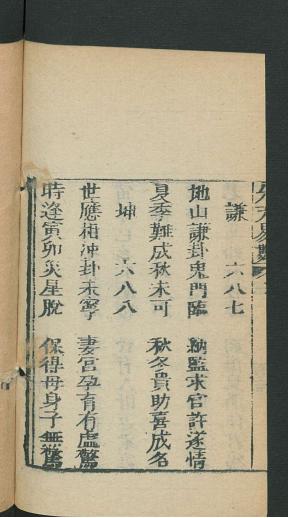 謙 六八七
地山謙卦鬼門臨 納監求官許遂情
夏季難成秋未可 秋冬貴助喜成名
坤 六八八
世應相冲卦未寧 妻宮孕育有虛驚
時逢寅卯災星脫 保得母身子無